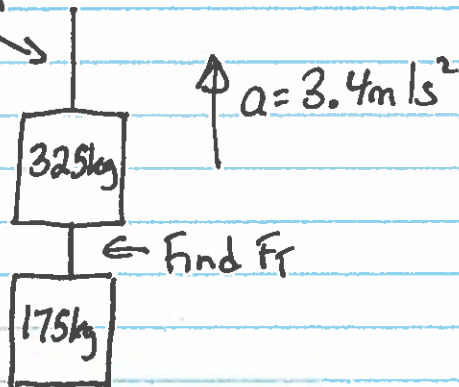 a = 3.4m/s²
325kg
← Find F_T
175kg